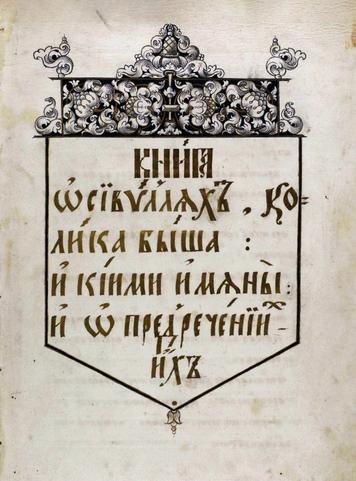 КНИГА
Ѡ СЇВѴЛЛѦХЪ, КО-
ЛИКА БЫША :
И КІИМИ ИМѦНЫ :
И Ѡ ПРЕДРЕЧЕНІИ-
ИХЪ